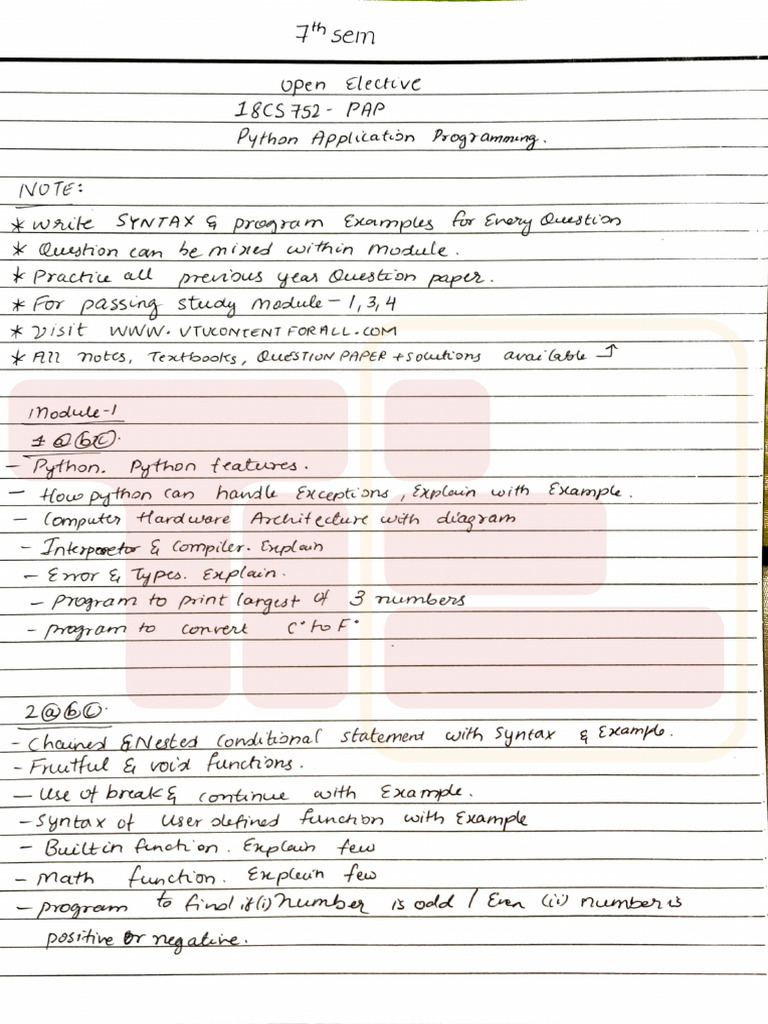 7th sem
Open Elective
18CS752 - PAP
Python Application Programming.
NOTE:
* Write SYNTAX & program Examples for Every Question
* Question can be mixed within module.
* Practice all previous year Question paper.
* For passing study module - 1, 3, 4
* Visit WWW.VTUCONTENTFORALL.COM
* All notes, Textbooks, QUESTION PAPER + solutions available ↑
Module-1
1 ⓐ ⓑ ⓒ.
- Python. Python features.
- How python can handle Exceptions, Explain with Example.
- Computer Hardware Architecture with diagram
- Interpretor & Compiler. Explain
- Error & Types. Explain.
- Program to print largest of 3 numbers
- program to convert C° to F°
2 ⓐ ⓑ ⓒ.
- Chained & Nested Conditional statement with Syntax & Example.
- Fruitful & void functions.
- Use of break & continue with Example.
- Syntax of User defined function with Example
- Builtin function. Explain few
- Math function. Explain few
- program to find if (i) Number is odd / Even (ii) number is
positive or negative.